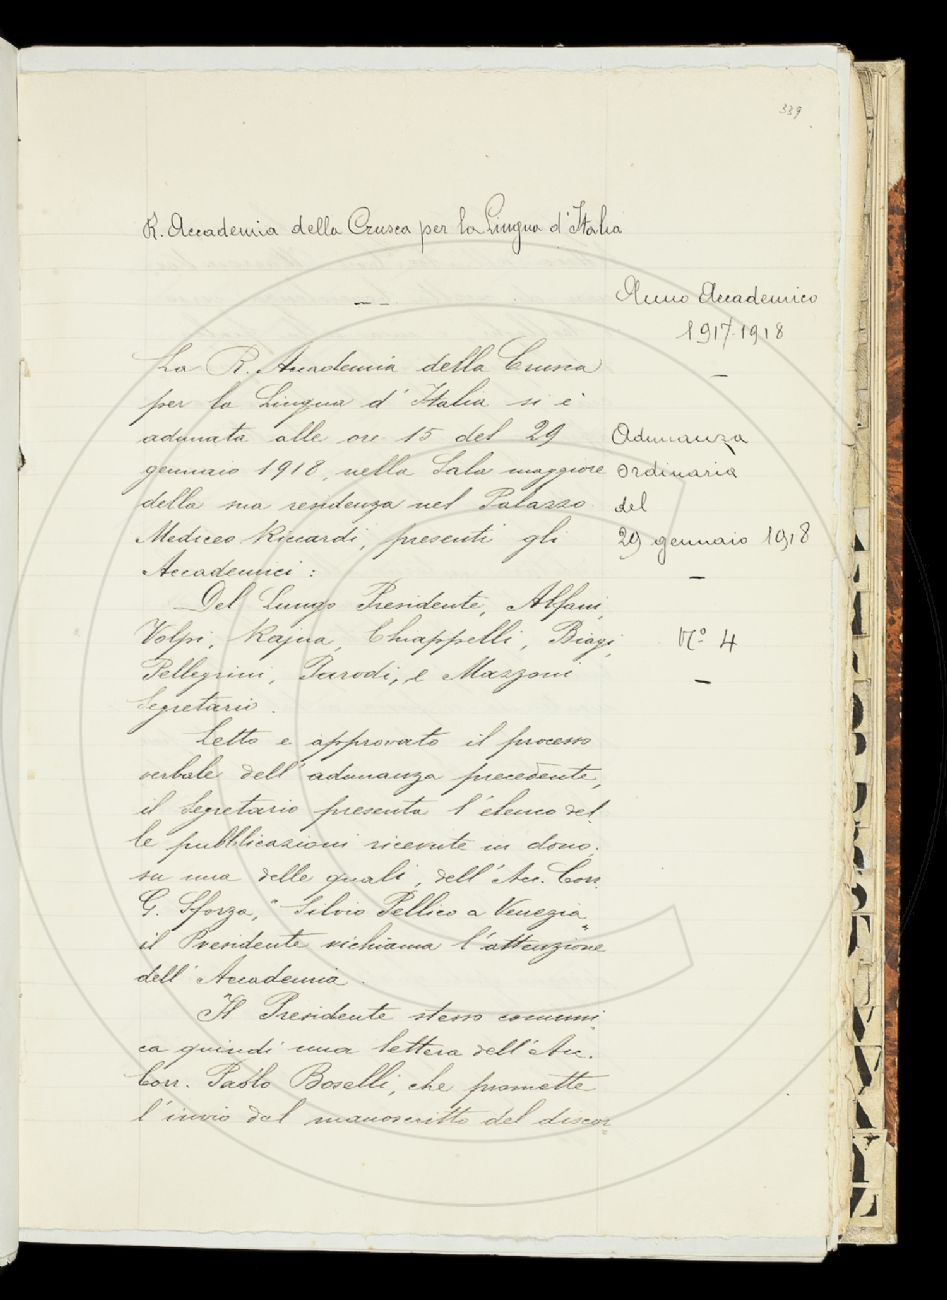 339
R. Accademia della Crusca per la Lingua d'Italia
Anno Accademico
1917-1918
La R. Accademia della Crusca
per la Lingua d'Italia si è
adunata alle ore 15 del 29
gennaio 1918, nella Sala maggiore
della sua residenza nel Palazzo
Mediceo Riccardi, presenti gli
Accademici:
Del Lungo Presidente, Alfani,
Volpi, Rajna, Chiappelli, Biagi,
Pellegrini, Parodi, e Mazzoni
Segretario.
Adunanza
Ordinaria
del
29 gennaio 1918
N.° 4
Letto e approvato il processo
verbale dell'adunanza precedente,
il Segretario presenta l'elenco del
le pubblicazioni ricevute in dono;
su una delle quali, dell'Acc. Corr.
G. Sforza, "Silvio Pellico a Venezia"
il Presidente richiama l'attenzione
dell'Accademia.
Il Presidente stesso comuni
ca quindi una lettera dell'Acc.
Corr. Paolo Boselli, che promette
l'invio del manoscritto del discor